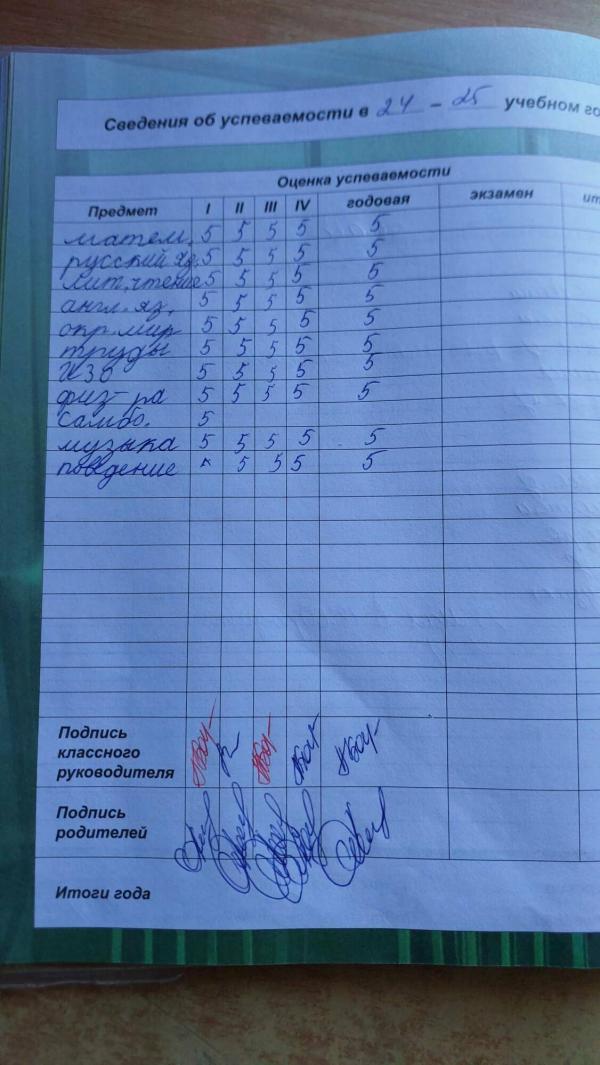 Сведения об успеваемости в 24 – 25 учебном го
Оценка успеваемости
Предмет I II III IV годовая экзамен ит
матем. 5 5 5 5 5
русский яз. 5 5 5 5 5
лит. чтение 5 5 5 5 5
англ. яз. 5 5 5 5 5
окр. мир 5 5 5 5 5
труды 5 5 5 5 5
ИЗО 5 5 5 5 5
физ-ра 5 5 5 5 5
самбо. 5
музыка 5 5 5 5 5
поведение 5 5 5 5
Подпись
классного
руководителя
Подпись
родителей
Итоги года